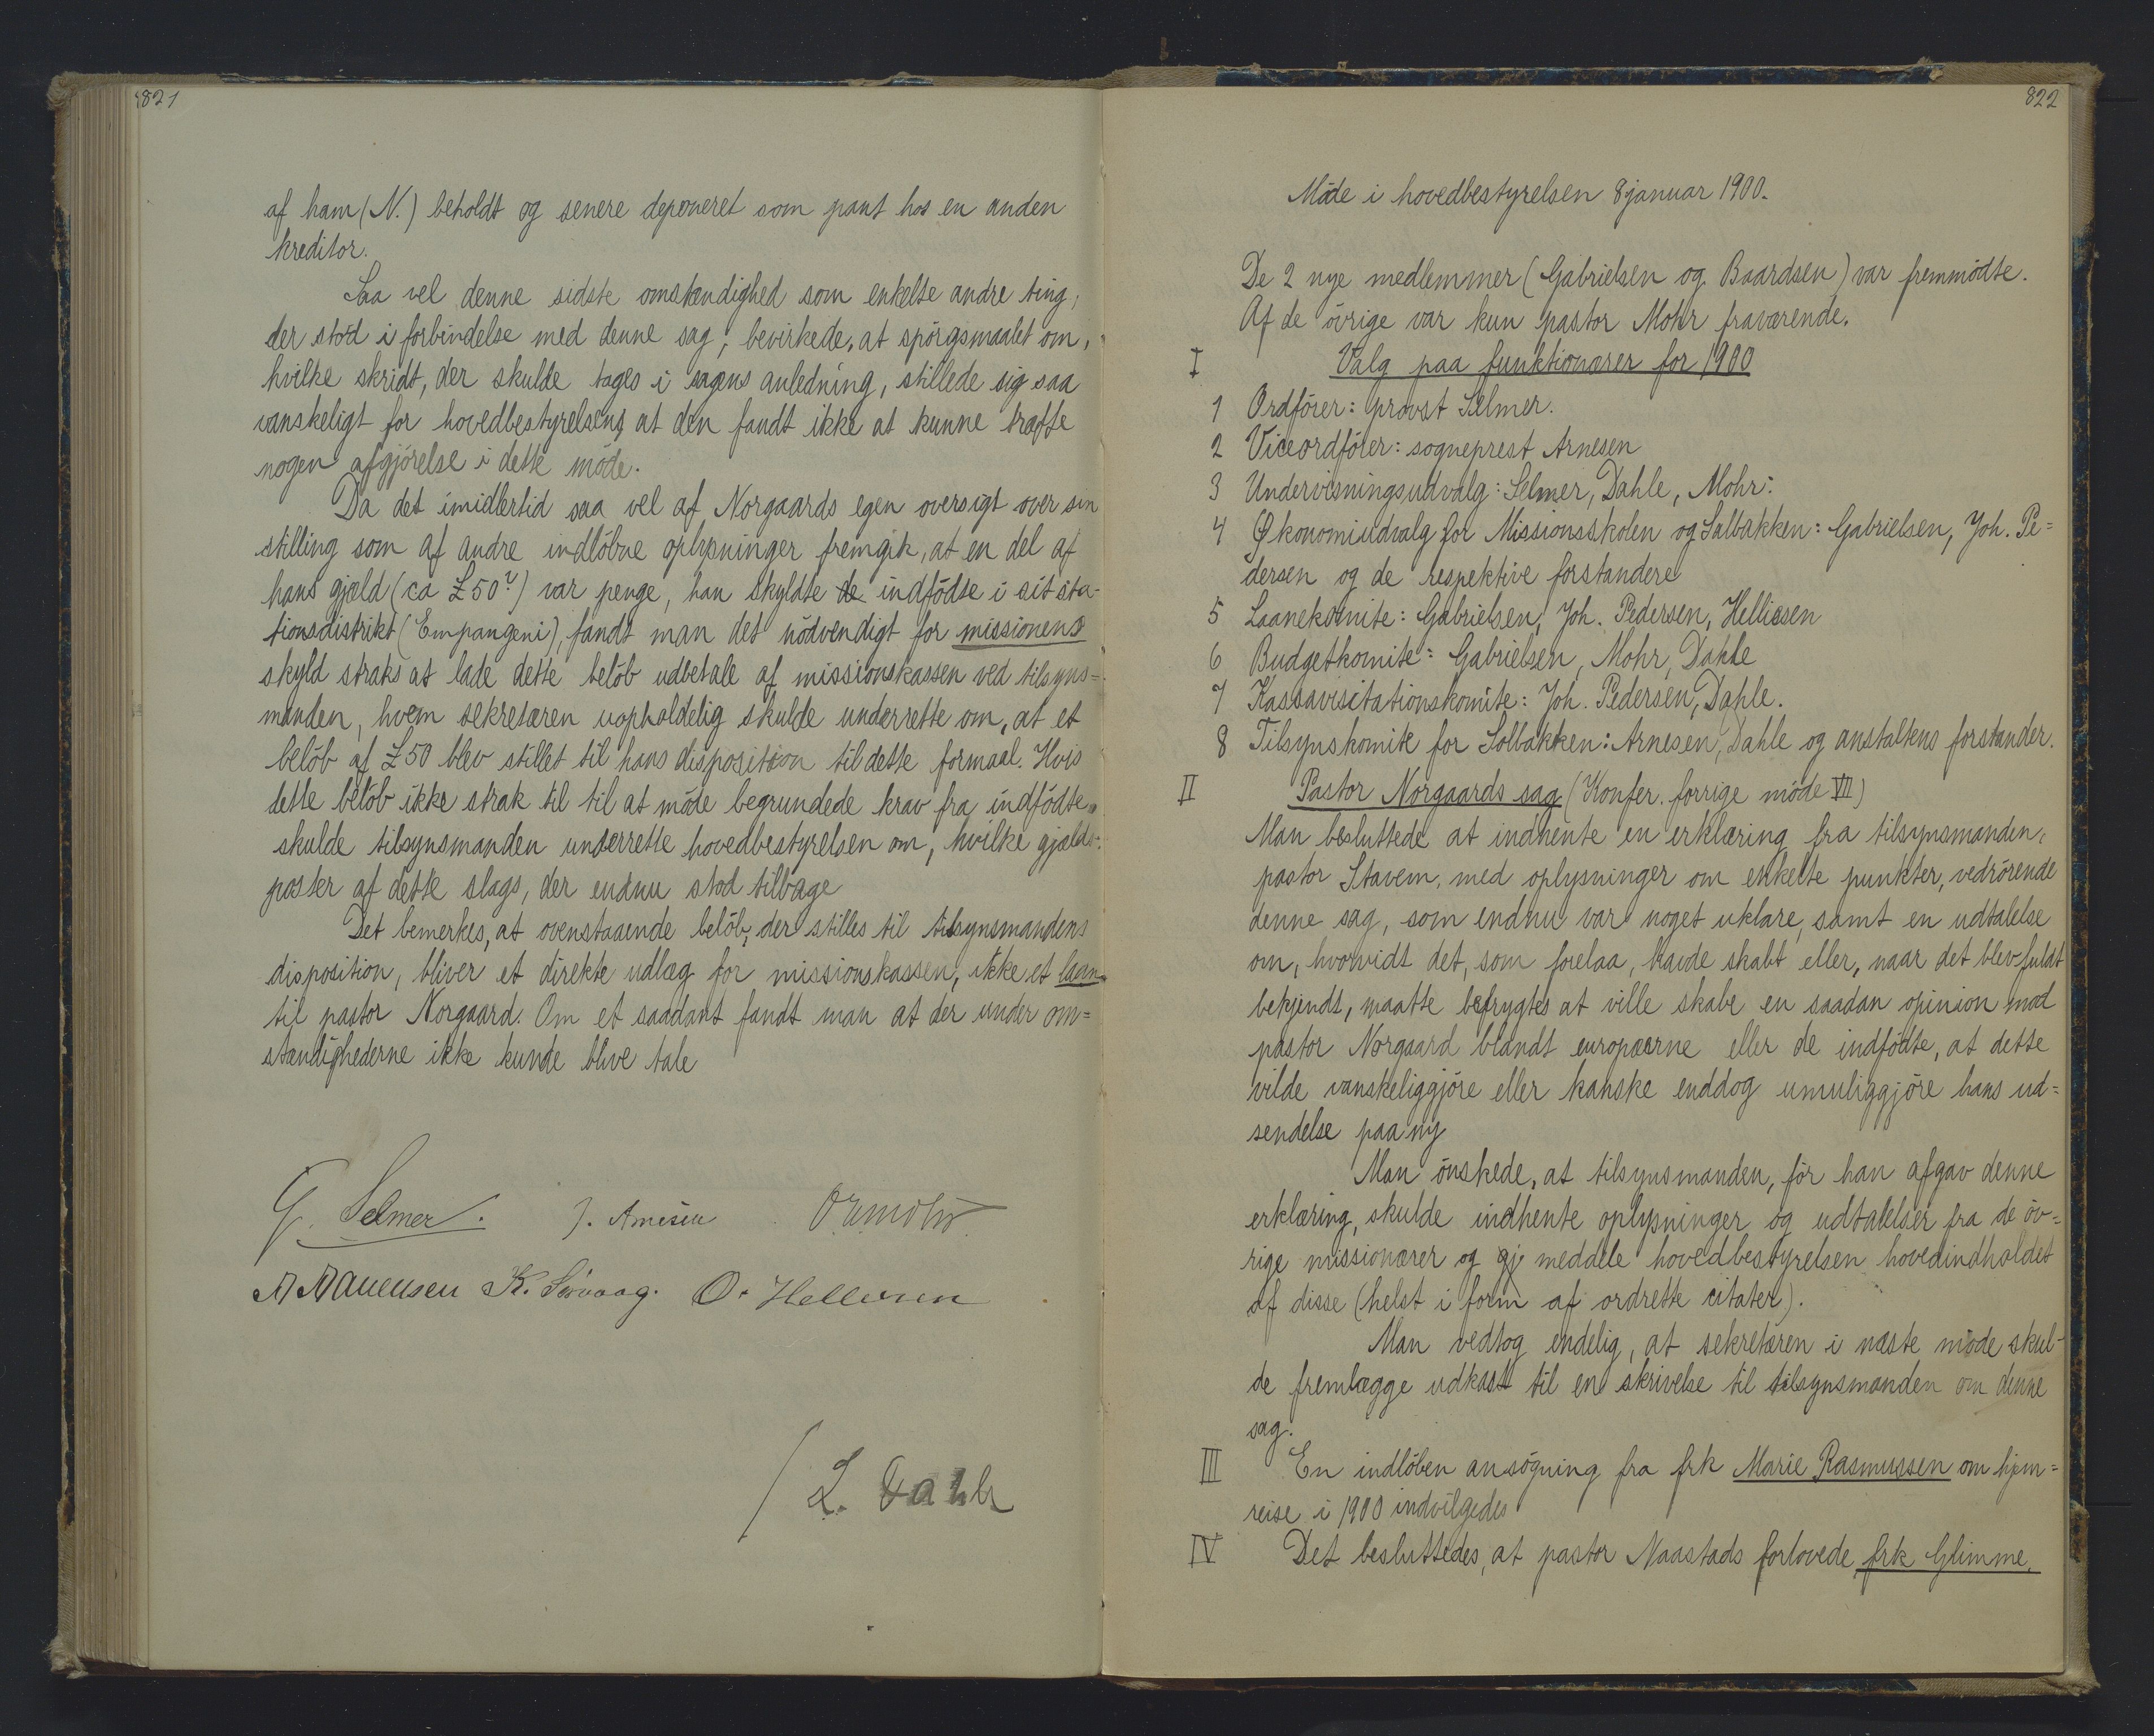 821
af ham (N.) beholdt og senere deponeret som pant hos en anden
kreditor.
Saa vel denne sidste omstændighed som enkelte andre ting,
der stod i forbindelse med denne sag, bevirkede, at spörgsmaalet om,
hvilke skridt, der skulde tages i sagens anledning, stillede sig saa
vanskeligt for hovedbestyrelsen, at den fandt ikke at kunne træffe
nogen afgjörelse i dette möde.
Da det imidlertid saa vel af Norgaards egen oversigt over sin
stilling som af andre indlöbne oplysninger fremgik, at en del af
hans gjæld (ca £50?) var penge, han skyldte de indfödte i sit sta-
tionsdistrikt (Empangeni), fandt man det nödvendigt for missionens
skyld straks at lade dette belöb udbetale af missionskassen ved tilsyns=
manden, hvem sekretæren uopholdelig skulde underrette om, at et
belöb af £50 blev stillet til hans disposition til dette formaal. Hvis
dette belöb ikke strak til til at möde begrundede krav fra indfödte,
skulde tilsynsmanden underrette hovedbestyrelsen om, hvilke gjælds-
poster af dette slags, der endnu stod tilbage
Det bemerkes, at ovenstaaende belöb, der stilles til tilsynsmandens
disposition, bliver et direkte udlæg for missionskassen, ikke et laan
til pastor Norgaard. Om et saadant fandt man at der under om=
stændighederne ikke kunde blive tale
G. Selmer. J. Arnesen
K. Sövaag. O. Helliesen
L. Dahle
822
Möde i hovedbestyrelsen 8 januar 1900.
De 2 nye medlemmer (Gabrielsen og Baardsen) var fremmödte.
Af de övrige var kun pastor Mohr fraværende.
I Valg paa funktionærer for 1900
1 Ordförer: provst Selmer.
2 Viceordförer: sogneprest Arnesen
3 Undervisningsudvalg: Selmer, Dahle, Mohr.
4 Økonomiudvalg for Missionsskolen og Solbakken: Gabrielsen, Joh. Pe=
dersen og de respektive forstandere
5 Laanekomite: Gabrielsen, Joh. Pedersen, Helliesen
6 Budgetkomite: Gabrielsen, Mohr, Dahle
7 Kassavisitationskomite: Joh. Pedersen, Dahle.
8 Tilsynskomite for Solbakken: Arnesen, Dahle og anstaltens forstander.
II Pastor Norgaards sag (Konfer. forrige möde VII)
Man besluttede at indhente en erklæring fra tilsynsmanden,
pastor Stavem, med oplysninger om enkelte punkter, vedrörende
denne sag, som endnu var noget uklare, samt en udtalelse
om, hvorvidt det, som forelaa, havde skabt eller, naar det blev fuldt
bekjendt, maatte befrygtes at ville skabe en saadan opinion mod
pastor Norgaard blandt europæerne eller de indfödte, at dette
vilde vanskeliggjöre eller kanske enddog umuliggjöre hans ud=
sendelse paa ny
Man önskede, at tilsynsmanden, för han afgav denne
erklæring, skulde indhente oplysninger og udtalelser fra de öv=
rige missionærer og gj meddele hovedbestyrelsen hovedindholdet
af disse (helst i form af ordrette citater).
Man vedtog endelig, at sekretæren i næste möde skul-
de fremlægge udkast til en skrivelse til tilsynsmanden om denne
sag.
III En indlöben ansögning fra frk Marie Rasmussen om hjem=
reise i 1900 indvilgedes
IV Det besluttedes, at pastor Naastads forlovede, frk Glimme,